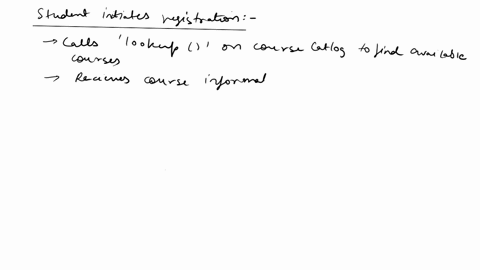 Student initiates registration:-
→ Calls 'lookup ()' on course Catlog to find available
courses
→ Receives course informal